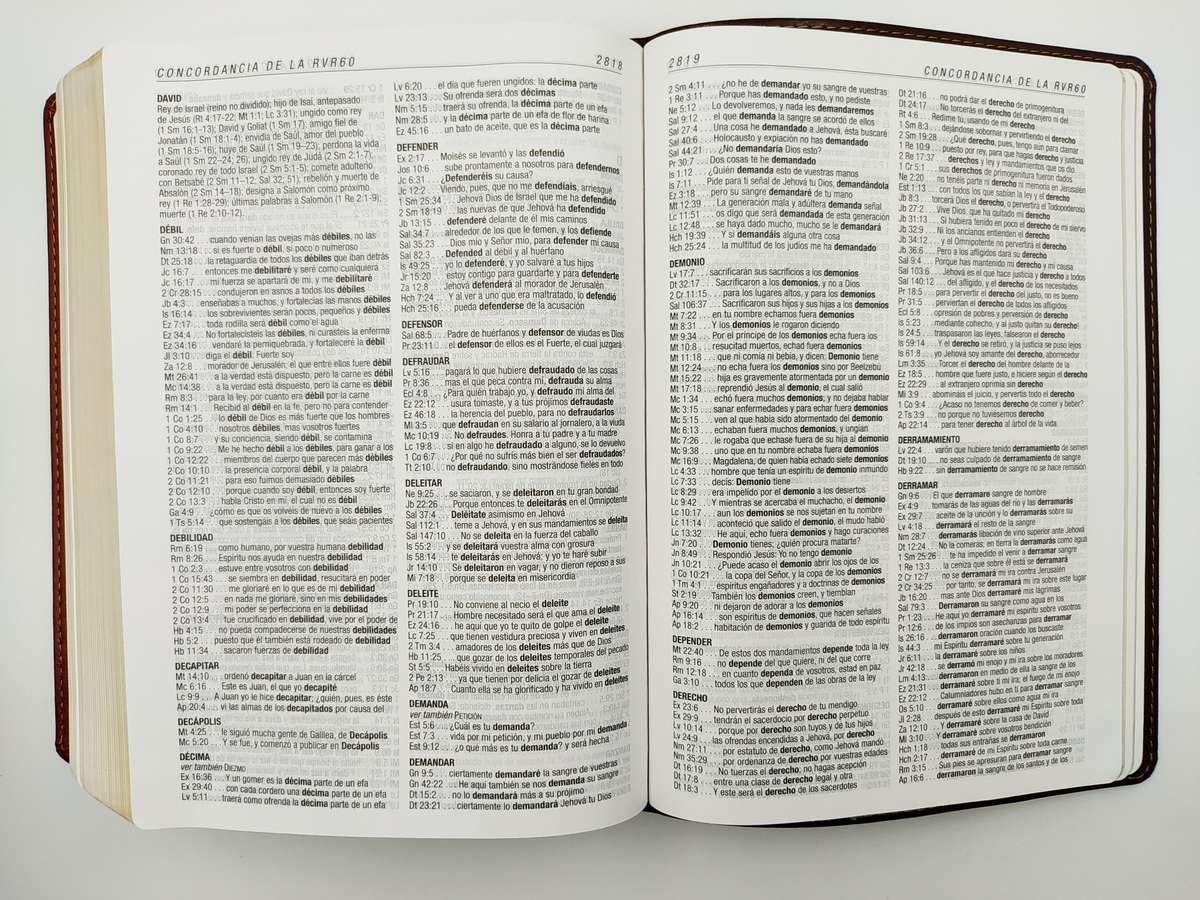 CONCORDANCIA DE LA RVR60
2818
DAVID
Rey de Israel (reino no dividido); hijo de Isaí, antepasado
de Jesús (Rt 4:17-22; Mt 1:1; Lc 3:31); ungido como rey
(1 Sm 16:1-13); David y Goliat (1 Sm 17); amigo fiel de
Jonatán (1 Sm 18:1-4); envidia de Saúl, amor del pueblo
(1 Sm 18:5-16); huye de Saúl (1 Sm 19–23); perdona la vida
a Saúl (1 Sm 22–24; 26); ungido rey de Judá (2 Sm 2:1-7);
coronado rey de todo Israel (2 Sm 5:1-5); comete adulterio
con Betsabé (2 Sm 11–12, Sal 32, 51); rebelión y muerte de
Absalón (2 Sm 14–18); designa a Salomón como próximo
rey (1 Re 1:28-29); últimas palabras a Salomón (1 Re 2:1-9);
muerte (1 Re 2:10-12).
DÉBIL
Gn 30:42 . . . cuando venían las ovejas más débiles, no las
Nm 13:18 . . si es fuerte o débil, si poco o numeroso
Dt 25:18 . . . la retaguardia de todos los débiles que iban detrás
Jc 16:7 . . . . entonces me debilitaré y seré como cualquiera
Jc 16:17 . . . mi fuerza se apartará de mí, y me debilitaré
2 Cr 28:15 . . condujeron en asnos a todos los débiles
Jb 4:3 . . . . enseñabas a muchos, y fortalecías las manos débiles
Is 16:14 . . . los sobrevivientes serán pocos, pequeños y débiles
Ez 7:17 . . . toda rodilla será débil como el agua
Ez 34:4 . . . No fortalecisteis las débiles, ni curasteis la enferma
Ez 34:16 . . . vendaré la perniquebrada, y fortaleceré la débil
Jl 3:10 . . . . diga el débil: Fuerte soy
Za 12:8 . . . morador de Jerusalén; el que entre ellos fuere débil
Mt 26:41 . . . a la verdad está dispuesto, pero la carne es débil
Mc 14:38 . . . a la verdad está dispuesto, pero la carne es débil
Rm 8:3 . . . . para la ley, por cuanto era débil por la carne
Rm 14:1 . . . Recibid al débil en la fe, pero no para contender
1 Co 1:25 . . . lo débil de Dios es más fuerte que los hombres
1 Co 4:10 . . . nosotros débiles, mas vosotros fuertes
1 Co 8:7 . . . y su conciencia, siendo débil, se contamina
1 Co 9:22 . . . Me he hecho débil a los débiles, para ganar a los
1 Co 12:22 . . miembros del cuerpo que parecen más débiles
2 Co 10:10 . . la presencia corporal débil, y la palabra
2 Co 11:21 . . para eso fuimos demasiado débiles
2 Co 12:10 . . porque cuando soy débil, entonces soy fuerte
2 Co 13:3 . . . habla Cristo en mí, el cual no es débil
Ga 4:9 . . . . ¿cómo es que os volvéis de nuevo a los débiles
1 Ts 5:14 . . . que sostengáis a los débiles, que seáis pacientes
DEBILIDAD
Rm 6:19 . . . como humano, por vuestra humana debilidad
Rm 8:26 . . . Espíritu nos ayuda en nuestra debilidad
1 Co 2:3 . . . estuve entre vosotros con debilidad
1 Co 15:43 . . se siembra en debilidad, resucitará en poder
2 Co 11:30 . . me gloriaré en lo que es de mi debilidad
2 Co 12:5 . . . en nada me gloriaré, sino en mis debilidades
2 Co 12:9 . . . mi poder se perfecciona en la debilidad
2 Co 13:4 . . . fue crucificado en debilidad, vive por el poder de
Hb 4:15 . . . no pueda compadecerse de nuestras debilidades
Hb 5:2 . . . . puesto que él también está rodeado de debilidad
Hb 11:34 . . . sacaron fuerzas de debilidad
DECAPITAR
Mt 14:10 . . . ordenó decapitar a Juan en la cárcel
Mc 6:16 . . . Este es Juan, el que yo decapité
Lc 9:9 . . . . A Juan yo le hice decapitar; ¿quién, pues, es éste
Ap 20:4 . . . vi las almas de los decapitados por causa del
DECÁPOLIS
Mt 4:25 . . . le siguió mucha gente de Galilea, de Decápolis
Mc 5:20 . . . Y se fue, y comenzó a publicar en Decápolis
DÉCIMA
ver también DIEZMO
Ex 16:36 . . . Y un gomer es la décima parte de un efa
Ex 29:40 . . . con cada cordero una décima parte de un efa
Lv 5:11 . . . traerá como ofrenda la décima parte de un efa
Lv 6:20 . . . el día que fueren ungidos: la décima parte
Lv 23:13 . . . Su ofrenda será dos décimas
Nm 5:15 . . . traerá su ofrenda, la décima parte de un efa
Nm 28:5 . . . y la décima parte de un efa de flor de harina
Ez 45:16 . . . un bato de aceite, que es la décima parte
DEFENDER
Ex 2:17 . . . Moisés se levantó y las defendió
Jos 10:6 . . . sube prontamente a nosotros para defendernos
Jc 6:31 . . . ¿Defenderéis su causa?
Jc 12:2 . . . Viendo, pues, que no me defendíais, arriesgué
1 Sm 25:34 . . Jehová Dios de Israel que me ha defendido
2 Sm 18:19 . . las nuevas de que Jehová ha defendido
Jb 13:15 . . . defenderé delante de él mis caminos
Sal 34:7 . . . alrededor de los que le temen, y los defiende
Sal 35:23 . . . Dios mío y Señor mío, para defender mi causa
Sal 82:3 . . . Defended al débil y al huérfano
Is 49:25 . . . yo lo defenderé, y yo salvaré a tus hijos
Jr 15:20 . . . estoy contigo para guardarte y para defenderte
Za 12:8 . . . Jehová defenderá al morador de Jerusalén
Hch 7:24 . . . Y al ver a uno que era maltratado, lo defendió
Hch 25:16 . . . pueda defenderse de la acusación
DEFENSOR
Sal 68:5 . . . Padre de huérfanos y defensor de viudas es Dios
Pr 23:11 . . . el defensor de ellos es el Fuerte, el cual juzgará
DEFRAUDAR
Lv 5:16 . . . pagará lo que hubiere defraudado de las cosas
Pr 8:36 . . . mas el que peca contra mí, defrauda su alma
Ecl 4:8 . . . ¿Para quién trabajo yo, y defraudo mi alma del
Ez 22:12 . . . usura tomaste, y a tus prójimos defraudaste
Ez 46:18 . . . la herencia del pueblo, para no defraudarlos
Ml 3:5 . . . que defraudan en su salario al jornalero, a la viuda
Mc 10:19 . . . No defraudes. Honra a tu padre y a tu madre
Lc 19:8 . . . si en algo he defraudado a alguno, se lo devuelvo
1 Co 6:7 . . . ¿Por qué no sufrís más bien el ser defraudados?
Tt 2:10 . . . no defraudando, sino mostrándose fieles en todo
DELEITAR
Ne 9:25 . . . se saciaron, y se deleitaron en tu gran bondad
Jb 22:26 . . . Porque entonces te deleitarás en el Omnipotente
Sal 37:4 . . . Deléitate asimismo en Jehová
Sal 112:1 . . . teme a Jehová, y en sus mandamientos se deleita
Sal 147:10 . . . No se deleita en la fuerza del caballo
Is 55:2 . . . y se deleitará vuestra alma con grosura
Is 58:14 . . . te deleitarás en Jehová; y yo te haré subir
Jr 14:10 . . . Se deleitaron en vagar, y no dieron reposo a sus
Mi 7:18 . . . porque se deleita en misericordia
DELEITE
Pr 19:10 . . . No conviene al necio el deleite
Pr 21:17 . . . Hombre necesitado será el que ama el deleite
Ez 24:16 . . . he aquí que yo te quito de golpe el deleite
Lc 7:25 . . . que tienen vestidura preciosa y viven en deleites
2 Tm 3:4 . . . amadores de los deleites más que de Dios
Hb 11:25 . . . que gozar de los deleites temporales del pecado
St 5:5 . . . Habéis vivido en deleites sobre la tierra
2 Pe 2:13 . . . ya que tienen por delicia el gozar de deleites
Ap 18:7 . . . Cuanto ella se ha glorificado y ha vivido en deleites
DEMANDA
ver también PETICIÓN
Est 5:6 . . . ¿Cuál es tu demanda?
Est 7:3 . . . vida por mi petición, y mi pueblo por mi demanda
Est 9:12 . . . ¿o qué más es tu demanda? y será hecha
DEMANDAR
Gn 9:5 . . . ciertamente demandaré la sangre de vuestras
Gn 42:22 . . . He aquí también se nos demanda su sangre
Dt 15:2 . . . no lo demandará más a su prójimo
Dt 23:21 . . . ciertamente lo demandará Jehová tu Dios
2819
CONCORDANCIA DE LA RVR60
2 Sm 4:11 . . . ¿no he de demandar yo su sangre de vuestras
1 Re 3:11 . . . Porque has demandado esto, y no pediste
Ne 5:12 . . . Lo devolveremos, y nada les demandaremos
Sal 9:12 . . . el que demanda la sangre se acordó de ellos
Sal 27:4 . . . Una cosa he demandado a Jehová, ésta buscaré
Sal 40:6 . . . Holocausto y expiación no has demandado
Sal 44:21 . . . ¿No demandaría Dios esto?
Pr 30:7 . . . Dos cosas te he demandado
Is 1:12 . . . ¿Quién demanda esto de vuestras manos
Is 7:11 . . . Pide para ti señal de Jehová tu Dios, demandándola
Ez 3:18 . . . pero su sangre demandaré de tu mano
Mt 12:39 . . . La generación mala y adúltera demanda señal
Lc 11:51 . . . os digo que será demandada de esta generación
Lc 12:48 . . . se haya dado mucho, mucho se le demandará
Hch 19:39 . . . Y si demandáis alguna otra cosa
Hch 25:24 . . . la multitud de los judíos me ha demandado
DEMONIO
Lv 17:7 . . . sacrificarán sus sacrificios a los demonios
Dt 32:17 . . . Sacrificaron a los demonios, y no a Dios
2 Cr 11:15 . . . para los lugares altos, y para los demonios
Sal 106:37 . . . Sacrificaron sus hijos y sus hijas a los demonios
Mt 7:22 . . . en tu nombre echamos fuera demonios
Mt 8:31 . . . Y los demonios le rogaron diciendo
Mt 9:34 . . . Por el príncipe de los demonios echa fuera los
Mt 10:8 . . . resucitad muertos, echad fuera demonios
Mt 11:18 . . . que ni comía ni bebía, y dicen: Demonio tiene
Mt 12:24 . . . no echa fuera los demonios sino por Beelzebú
Mt 15:22 . . . hija es gravemente atormentada por un demonio
Mt 17:18 . . . reprendió Jesús al demonio, el cual salió
Mc 1:34 . . . echó fuera muchos demonios; y no dejaba hablar
Mc 3:15 . . . sanar enfermedades y para echar fuera demonios
Mc 5:15 . . . ven al que había sido atormentado del demonio
Mc 6:13 . . . echaban fuera muchos demonios, y ungían
Mc 7:26 . . . le rogaba que echase fuera de su hija al demonio
Mc 9:38 . . . uno que en tu nombre echaba fuera demonios
Mc 16:9 . . . Magdalena, de quien había echado siete demonios
Lc 4:33 . . . hombre que tenía un espíritu de demonio inmundo
Lc 7:33 . . . decís: Demonio tiene
Lc 8:29 . . . era impelido por el demonio a los desiertos
Lc 9:42 . . . Y mientras se acercaba el muchacho, el demonio
Lc 10:17 . . . aun los demonios se nos sujetan en tu nombre
Lc 11:14 . . . aconteció que salido el demonio, el mudo habló
Lc 13:32 . . . He aquí, echo fuera demonios y hago curaciones
Jn 7:20 . . . Demonio tienes; ¿quién procura matarte?
Jn 8:49 . . . Respondió Jesús: Yo no tengo demonio
Jn 10:21 . . . ¿Puede acaso el demonio abrir los ojos de los
1 Co 10:21 . . . la copa del Señor, y la copa de los demonios
1 Tm 4:1 . . . espíritus engañadores y a doctrinas de demonios
St 2:19 . . . También los demonios creen, y tiemblan
Ap 9:20 . . . ni dejaron de adorar a los demonios
Ap 16:14 . . . son espíritus de demonios, que hacen señales
Ap 18:2 . . . habitación de demonios y guarida de todo espíritu
DEPENDER
Mt 22:40 . . . De estos dos mandamientos depende toda la ley
Rm 9:16 . . . no depende del que quiere, ni del que corre
Rm 12:18 . . . en cuanto dependa de vosotros, estad en paz
Ga 3:10 . . . todos los que dependen de las obras de la ley
DERECHO
Ex 23:6 . . . No pervertirás el derecho de tu mendigo
Ex 29:9 . . . tendrán el sacerdocio por derecho perpetuo
Lv 10:14 . . . por derecho son tuyos y de tus hijos
Lv 24:9 . . . las ofrendas encendidas a Jehová, por derecho
Nm 27:11 . . . por estatuto de derecho, como Jehová mandó
Nm 35:29 . . . por ordenanza de derecho por vuestras edades
Dt 16:19 . . . No tuerzas el derecho; no hagas acepción
Dt 17:8 . . . entre una clase de derecho legal y otra
Dt 18:3 . . . Y este será el derecho de los sacerdotes
Dt 21:16 . . . no podrá dar el derecho de primogenitura
Dt 24:17 . . . No torcerás el derecho del extranjero ni del
Rt 4:6 . . . Redime tú, usando de mi derecho
1 Sm 8:3 . . . dejándose sobornar y pervirtiendo el derecho
2 Sm 19:28 . . . ¿Qué derecho, pues, tengo aún para clamar
1 Re 10:9 . . . puesto por rey, para que hagas derecho y justicia
2 Re 17:37 . . . derechos y ley y mandamientos que os dio
1 Cr 5:1 . . . sus derechos de primogenitura fueron dados
Ne 2:20 . . . no tenéis parte ni derecho ni memoria en Jerusalén
Est 1:13 . . . con todos los que sabían la ley y el derecho
Jb 8:3 . . . torcerá Dios el derecho, o pervertirá el Todopoderoso
Jb 27:2 . . . Vive Dios, que ha quitado mi derecho
Jb 31:13 . . . Si hubiera tenido en poco el derecho de mi siervo
Jb 32:9 . . . Ni los ancianos entienden el derecho
Jb 34:12 . . . y el Omnipotente no pervertirá el derecho
Jb 36:6 . . . Pero a los afligidos dará su derecho
Sal 9:4 . . . Porque has mantenido mi derecho y mi causa
Sal 103:6 . . . Jehová es el que hace justicia y derecho a todos
Sal 140:12 . . . del afligido, y el derecho de los necesitados
Pr 18:5 . . . para pervertir el derecho del justo, no es bueno
Pr 31:5 . . . perviertan el derecho de todos los afligidos
Ecl 5:8 . . . opresión de pobres y perversión de derecho
Is 5:23 . . . mediante cohecho, y al justo quitan su derecho!
Is 24:5 . . . traspasaron las leyes, falsearon el derecho
Is 59:14 . . . Y el derecho se retiró, y la justicia se puso lejos
Is 61:8 . . . yo Jehová soy amante del derecho, aborrecedor
Lm 3:35 . . . Torcer el derecho del hombre delante de la
Ez 18:5 . . . hombre que fuere justo, e hiciere según el derecho
Ez 22:29 . . . al extranjero oprimía sin derecho
Mi 3:9 . . . abomináis el juicio, y pervertís todo el derecho
1 Co 9:4 . . . ¿Acaso no tenemos derecho de comer y beber?
2 Ts 3:9 . . . no porque no tuviésemos derecho
Ap 22:14 . . . para tener derecho al árbol de la vida
DERRAMAMIENTO
Lv 22:4 . . . varón que hubiere tenido derramamiento de semen
Dt 19:10 . . . no seas culpado de derramamiento de sangre
Hb 9:22 . . . sin derramamiento de sangre no se hace remisión
DERRAMAR
Gn 9:6 . . . El que derramare sangre de hombre
Ex 4:9 . . . tomarás de las aguas del río y las derramarás
Ex 29:7 . . . aceite de la unción y lo derramarás sobre su
Lv 4:18 . . . derramará el resto de la sangre
Nm 28:7 . . . derramarás libación de vino superior ante Jehová
Dt 12:24 . . . No la comerás; en tierra la derramarás como agua
1 Sm 25:26 . . . te ha impedido el venir a derramar sangre
1 Re 13:3 . . . la ceniza que sobre él está se derramará
2 Cr 12:7 . . . no se derramará mi ira contra Jerusalén
2 Cr 34:25 . . . por tanto, se derramará mi ira sobre este lugar
Jb 16:20 . . . mas ante Dios derramaré mis lágrimas
Sal 79:3 . . . Derramaron su sangre como agua en los
Pr 1:23 . . . He aquí yo derramaré mi espíritu sobre vosotros
Pr 12:6 . . . de los impíos son asechanzas para derramar
Is 26:16 . . . derramaron oración cuando los buscaste
Is 44:3 . . . mi Espíritu derramaré sobre tu
Jr 6:11 . . . la derramaré sobre los niños
Jr 42:18 . . . se derramó mi enojo y mi ira sobre los moradores
Lm 4:13 . . . derramaron en medio de ella la sangre de los
Ez 21:31 . . . derramaré sobre ti mi ira; el fuego de mi enojo
Ez 22:12 . . . Calumniadores hubo en ti para derramar sangre
Os 5:10 . . . derramaré sobre ellos como agua mi ira
Jl 2:28 . . . después de esto derramaré mi Espíritu sobre toda
Za 12:10 . . . Y derramaré sobre la casa de David
Ml 3:10 . . . y derramaré sobre vosotros bendición
Hch 1:18 . . . todas sus entrañas se derramaron
Hch 2:17 . . . derramaré de mi Espíritu sobre toda carne
Rm 3:15 . . . Sus pies se apresuran para derramar sangre
Ap 16:6 . . . derramaron la sangre de los santos y de los